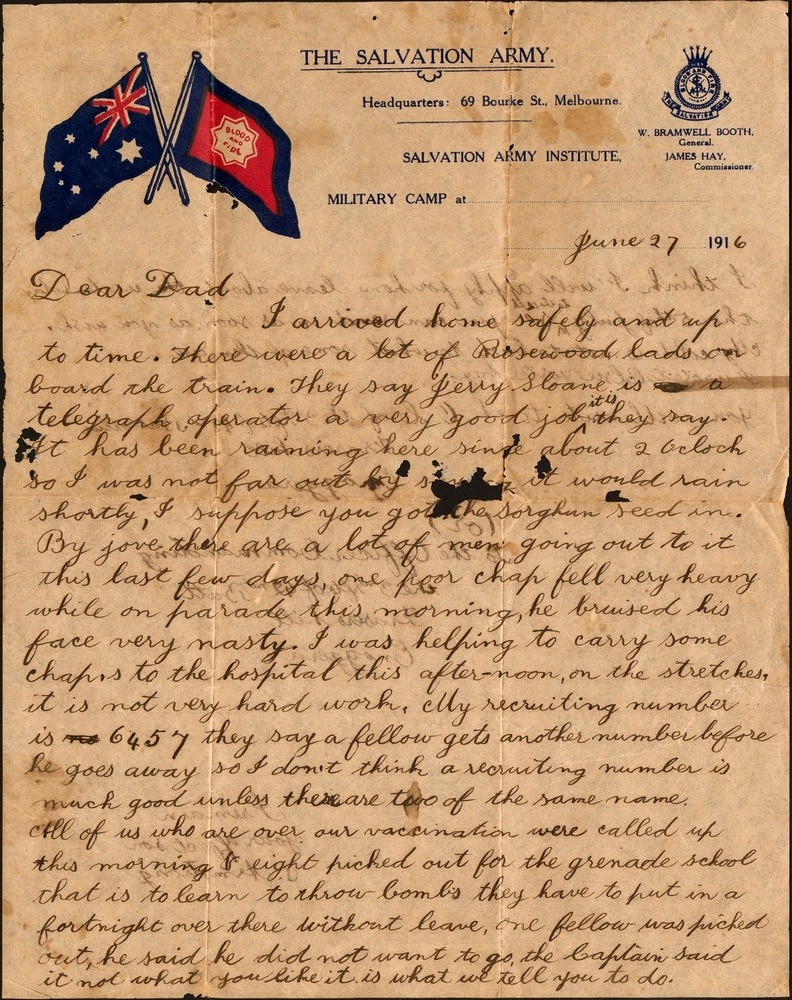 THE SALVATION ARMY.
Headquarters: 69 Bourke St., Melbourne.
BLOOD AND FIRE
BLOOD AND FIRE
THE SALVATION ARMY
W. BRAMWELL BOOTH,
General.
JAMES HAY,
Commissioner.
SALVATION ARMY INSTITUTE,
MILITARY CAMP at
June 27 1916
Dear Dad
I arrived home safely and up
to time. There were a lot of Rosewood lads on
board the train. They say Jerry Sloane is a
telegraph operator a very good job it is they say.
It has been raining here sinse about 2 Oclock
so I was not far out by it would rain
shortly, I suppose you got the sorghun seed in.
By jove there are a lot of men going out to it
this last few days, one poor chap fell very heavy
while on parade this morning, he bruised his
face very nasty. I was helping to carry some
chaps to the hospital this after-noon, on the stretches,
it is not very hard work. My recruiting number
is 6457 they say a fellow gets another number before
he goes away so I don't think a recruiting number is
much good unless there are two of the same name.
All of us who are over our vaccination were called up
this morning & eight picked out for the grenade school
that is to learn to throw bombs they have to put in a
fortnight over there without leave, one fellow was picked
out, he said he did not want to go, the Captain said
it not what you like it is what we tell you to do.